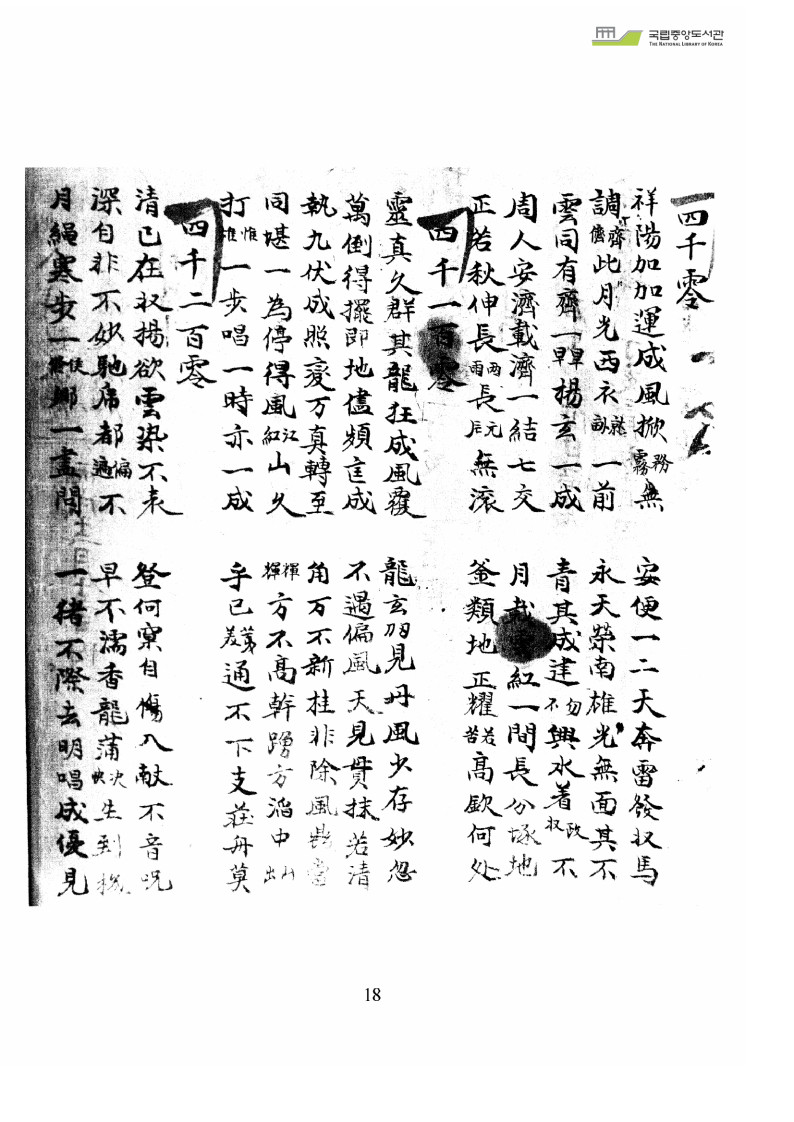 국립중앙도서관
THE NATIONAL LIBRARY OF KOREA
四千零
祥陽加加運成風掀霧務無
安便一二天奔雷發収馬
調儕齊此月光西衣一前
永天榮南雄光無面其不
雲同有齊一早旱揚玄一成
青其成達不勿興水着収政不
周人安濟載濟一結七交
月紅一間長分塚地
正若秋伸長雨兩長后元無滚
釜類地正耀苦若高欽何处
四千一百零
靈真久群其龍狂成風覆
龍玄見丹風少存妙忽
萬倒得擺即地儘頻成
不遇偏風天見貫抹若清
執九伏成照変万真轉至
角万不新挂非除風當
同堪一為停得風紅江山久
輝揮方不高幹蹭方滔中出山
打推惟一步唱一時亦一成
乎已差第通不下支莊舟莫
四千二百零
清已在収揚欲雲染不表
登何寞自傷入献不音呪
深自非不妙馳席都遍偏不
早不濡香龍蒲快决生到
月繩寒步一使鄉一盡間
一猪不際去明唱成優見
18